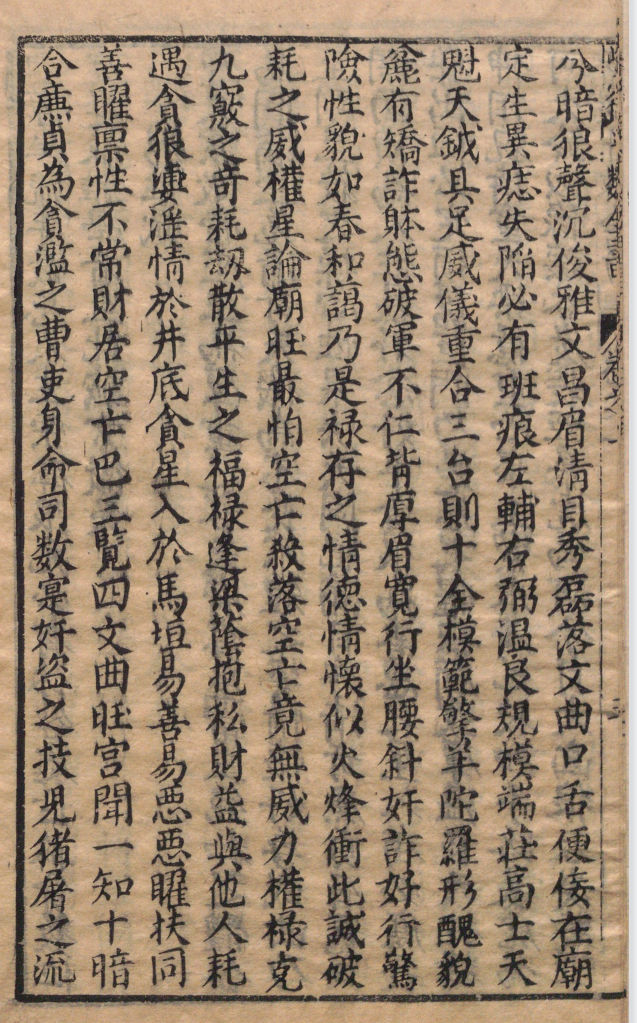 分暗狼聲沉俊雅文昌眉清目秀磊落文曲口舌便佞在廟
定生異痣失陷必有班痕左輔右弼溫良規模端莊高士天
魁天鉞具足威儀重合三台則十全模範擎羊陀羅形醜貌
麄有矯詐躰態破軍不仁背厚眉寬行坐腰斜奸詐好行驚
險性貌如春和藹乃是禄存之情德情懷似火烽衝此誠破
耗之威權星論廟旺最怕空亡殺落空亡竟無威力權禄克
九竅之奇耗劫散平生之福禄逢梁蔭抱私財益與他人耗
遇貪狼婬滛情於井底貪星入於馬垣易善易惡惡曜扶同
善曜禀性不常財居空亡巴三覽四文曲旺宮聞一知十暗
合亷貞為貪濫之曹吏身命司数寔奸盜之技児猪屠之流